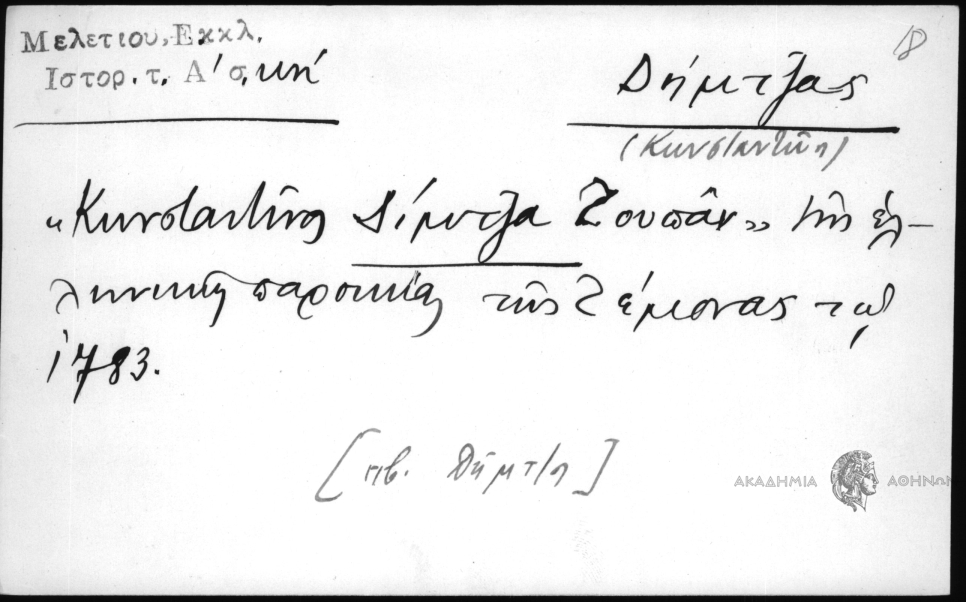 Μελετίου, Εκκλ.
Ιστορ. τ. Α΄ σ. κη΄
18
Δήμτζας
(Κωνσταντῖν)
„Κωνσταντῖνος Δίμτζα Ζουπάν” τῆς ἑλ-
ληνικῆς παροικίας τῆς Ζέμονας τῷ
1783.
[πβ. Δήμτζη]
ΑΚΑΔΗΜΙΑ ΑΘΗΝΩΝ